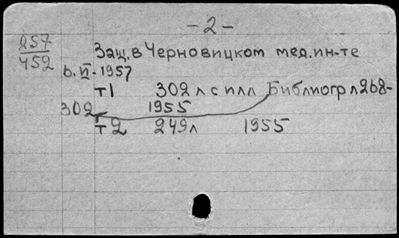 - 2 -
257
452
Защ. в Черновицком мед. ин-те
6. VI - 1957
т 1 302 л с илл Библиогр л 268-
302 1955
т 2 249 л 1955